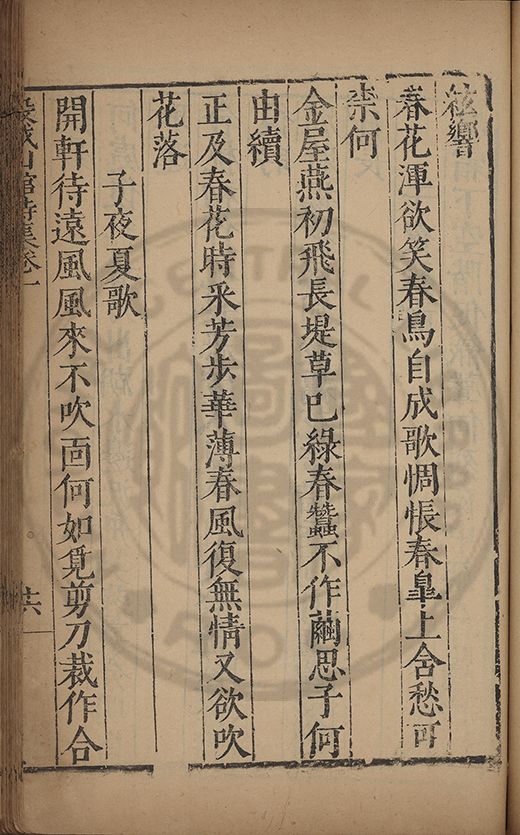 絃響
春花渾欲笑春鳥自成歌惆悵春皐上含愁可
柰何
金屋燕初飛長堤草已綠春蠶不作繭思子何
由續
正及春花時采芳步華薄春風復無情又欲吹
花落
子夜夏歌
開軒待遠風風來不吹面何如覓剪刀裁作合
山館詩集卷一
十六